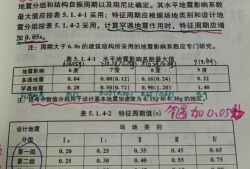 震分组和结构自振周期以及阻尼比确定。其水平地震影响系数
最大值应按表 5.1.4-1 采用；特征周期应根据场地类别和设计地
震分组按表 5.1.4-2 采用，计算罕遇地震作用时，特征周期应增
加 0.05s。
注：周期大于 6.0s 的建筑结构所采用的地震影响系数应专门研究。
表 5.1.4-1 水平地震影响系数最大值
地震影响 6 度 7 度 8 度 9 度
多遇地震 0.04 0.08(0.12) 0.16(0.24) 0.32
罕遇地震 0.28 0.50(0.72) 0.90(1.20) 1.40
注：括号中数值分别用于设计基本地震加速度为 0.15g 和 0.30g 的地区。
罕遇加 0.05s
表 5.1.4-2 特征周期值(s)
设计地震 场 地 类 别
分组
第一组 0.20 0.25 0.35 0.45 0.65
第二组 0.25 0.30 0.40 0.55 0.75